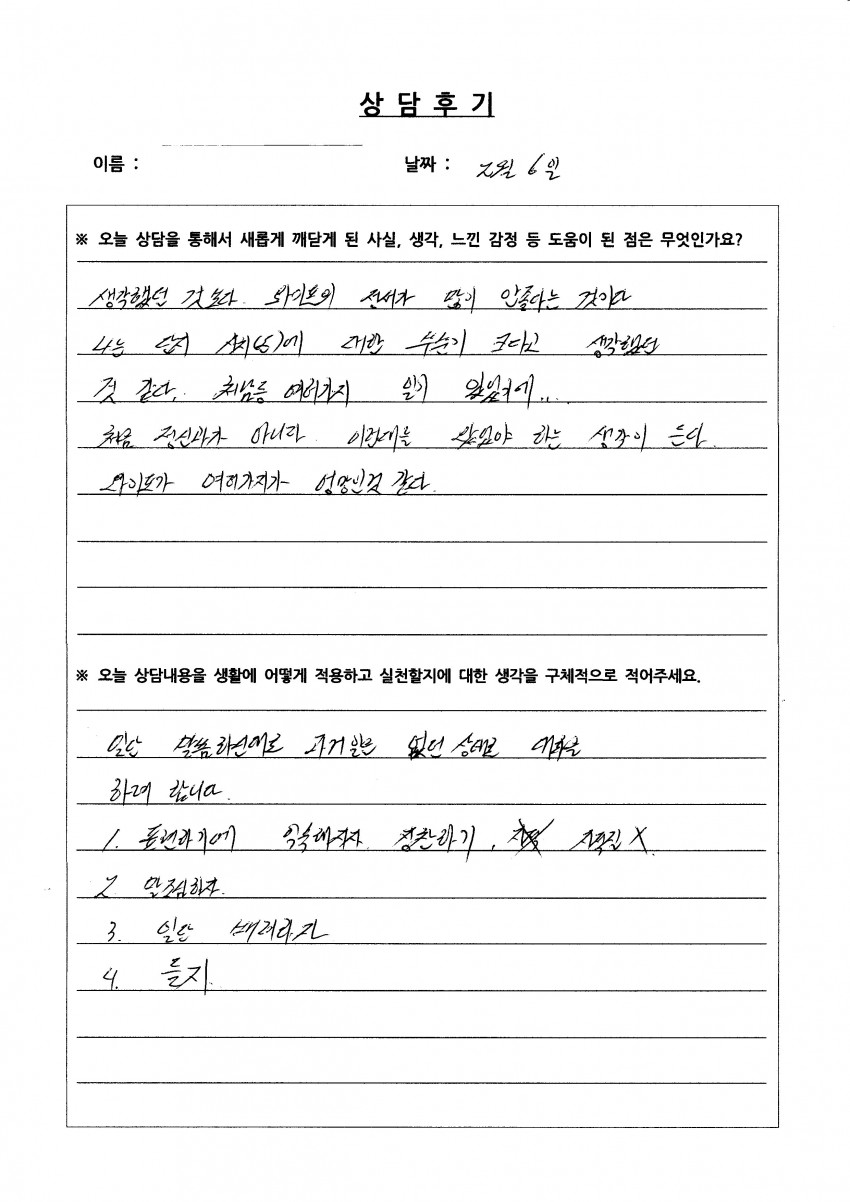 상 담 후 기
이름 :
날짜 : 2월 6일
※ 오늘 상담을 통해서 새롭게 깨닫게 된 사실, 생각, 느낀 감정 등 도움이 된 점은 무엇인가요?
생각했던 것보다. 와이프의 많이 안좋다는 것이다
나는 단지 대한 크다고 생각했던
것 같다. 여러가지 일이
처음 정신과가 아니라. 하는 생각이 든다.
와이프가 여러가지가 엉망인것 같다.
※ 오늘 상담내용을 생활에 어떻게 적용하고 실천할지에 대한 생각을 구체적으로 적어주세요.
일단 말씀하신대로 과거일은 없던 상태로 대화를
하려 합니다.
1. 표현하기에 익숙해지자. 칭찬하기, 지적질 X.
2. 말조심하자.
3. 일단 배려하자
4. 듣자.